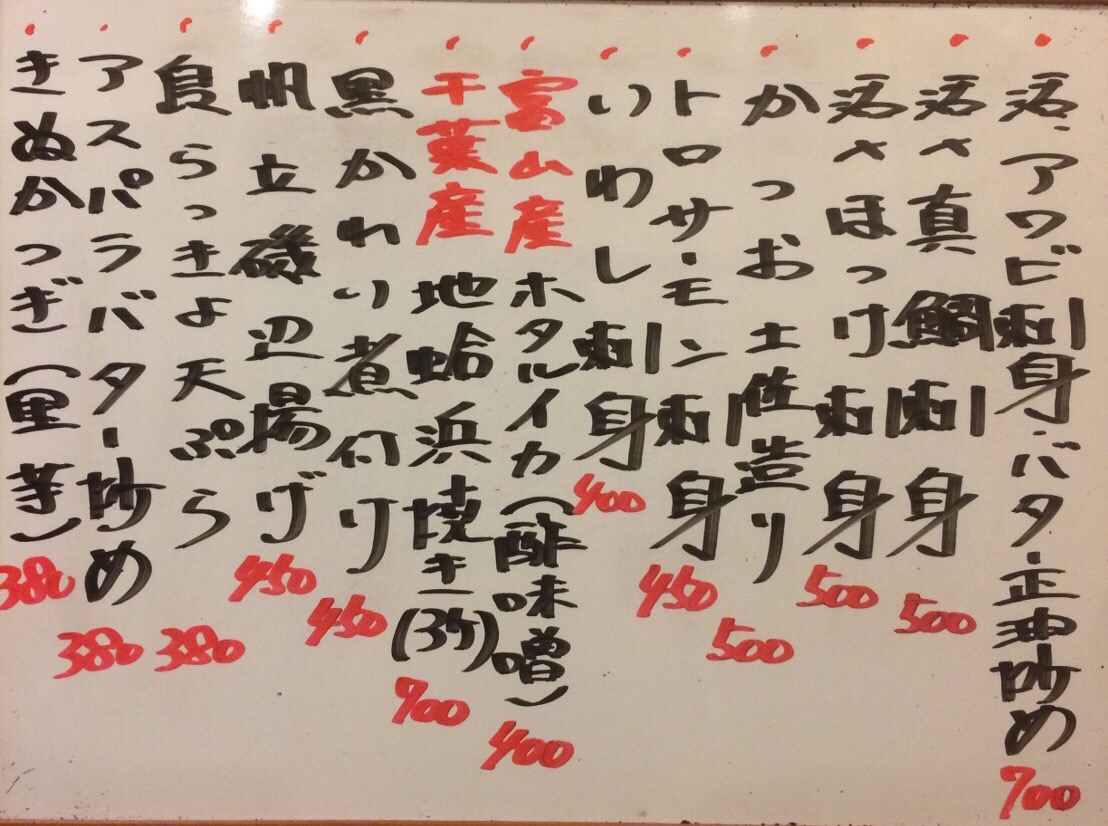 活アワビ刺身・バター正油炒め 700
活〆真鯛刺身 500
活〆ほっけ刺身 500
かつお土佐造り 500
トロサーモン刺身 450
いわし刺身 400
富山産ホタルイカ(酢味噌) 400
千葉産地蛤浜焼き(3ヶ) 700
黒かわり煮付け 450
帆立磯辺揚げ 450
島らっきょ天ぷら 380
アスパラバター炒め 380
きぬかつぎ(里芋) 380